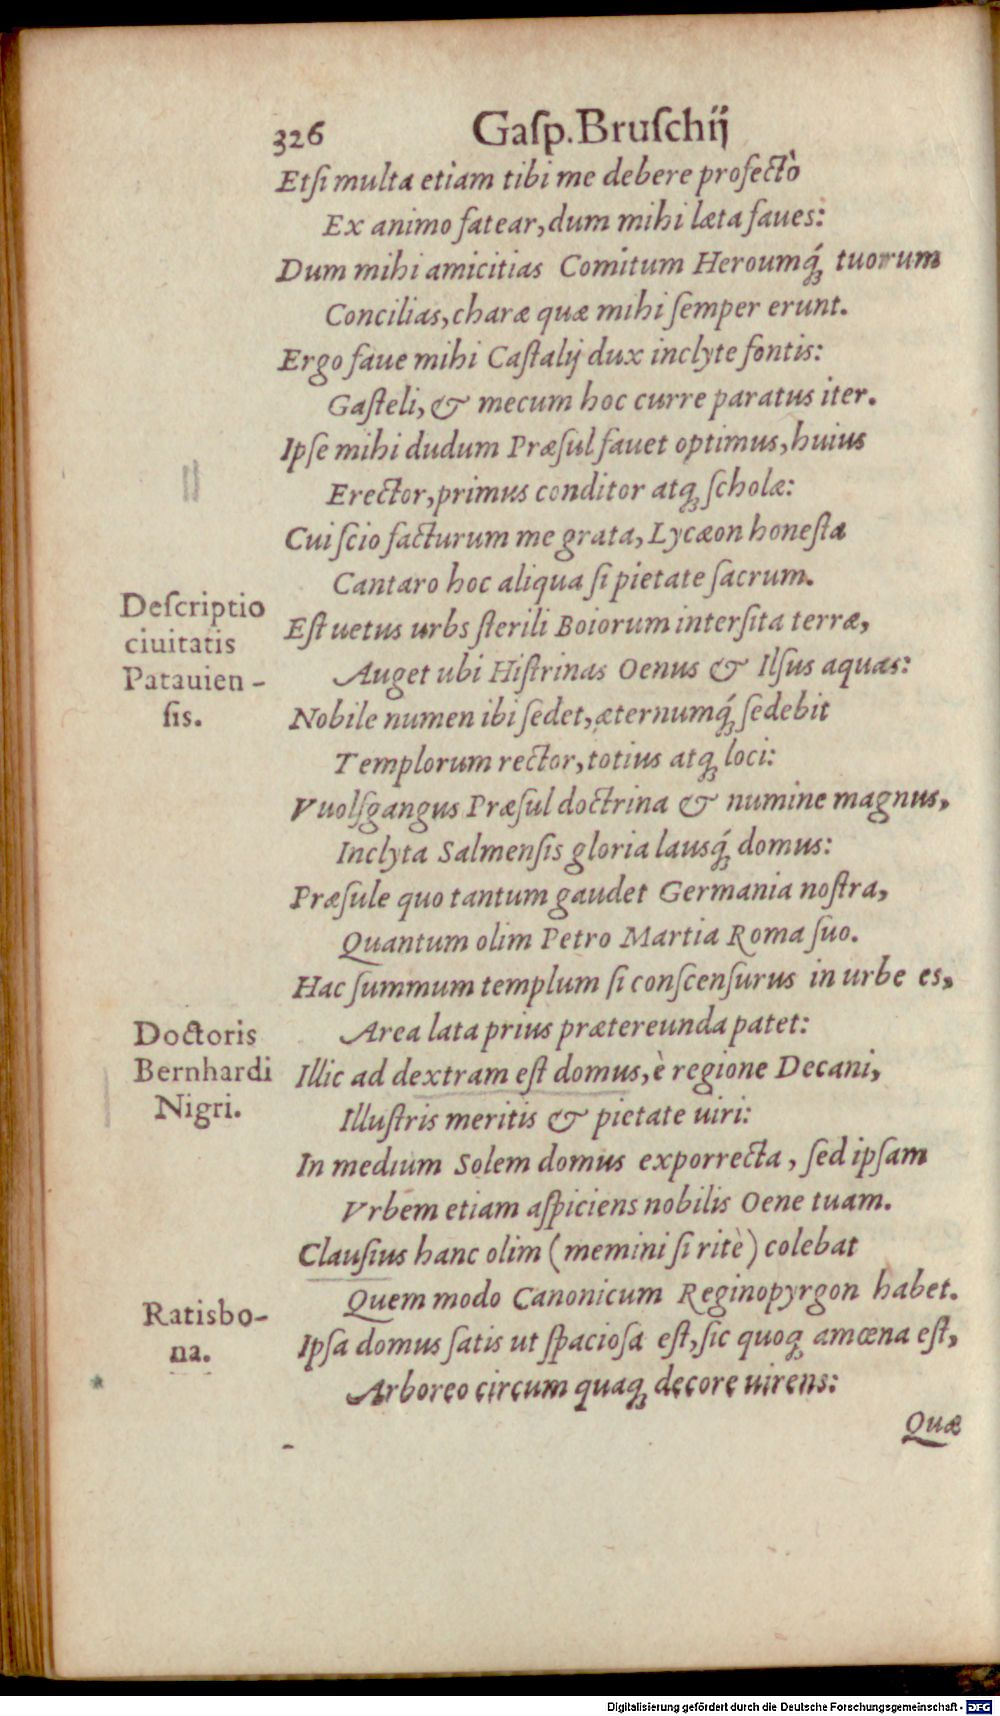 326 Gaſp. Bruſchij
Etſi multa etiam tibi me debere profectò
Ex animo fatear, dum mihi læta faues:
Dum mihi amicitias Comitum Heroumq́ꝫ tuorum
Concilias, charæ quæ mihi ſemper erunt.
Ergo faue mihi Caſtalij dux inclyte fontis:
Gaſteli, & mecum hoc curre paratus iter.
Ipſe mihi dudum Præſul fauet optimus, huius
Erector, primus conditor atqꝫ ſcholæ:
Cui ſcio facturum me grata, Lycæon honeſta
Cantaro hoc aliqua ſi pietate ſacrum.
Deſcriptio
ciuitatis
Patauien-
ſis.
Eſt uetus urbs ſterili Boiorum interſita terræ,
Auget ubi Hiſtrinas Oenus & Ilſus aquas:
Nobile numen ibi ſedet, æternumq́ꝫ ſedebit
Templorum rector, totius atqꝫ loci:
Vuolfgangus Præſul doctrina & numine magnus,
Inclyta Salmenſis gloria lausq́ꝫ domus:
Præſule quo tantum gaudet Germania noſtra,
Quantum olim Petro Martia Roma ſuo.
Hac ſummum templum ſi conſcenſurus in urbe es,
Area lata prius prætereunda patet:
Doctoris
Bernhardi
Nigri.
Illic ad dextram eſt domus, è regione Decani,
Illuſtris meritis & pietate uiri:
In medium Solem domus exporrecta, ſed ipſam
Vrbem etiam aſpiciens nobilis Oene tuam.
Clauſius hanc olim (memini ſi ritè) colebat
Quem modo Canonicum Reginopyrgon habet.
Ratisbo-
na.
Ipſa domus ſatis ut ſpacioſa eſt, ſic quoqꝫ amœna eſt,
Arboreo circum quaqꝫ decore uirens:
Quæ
Digitalisierung gefördert durch die Deutsche Forschungsgemeinschaft - DFG